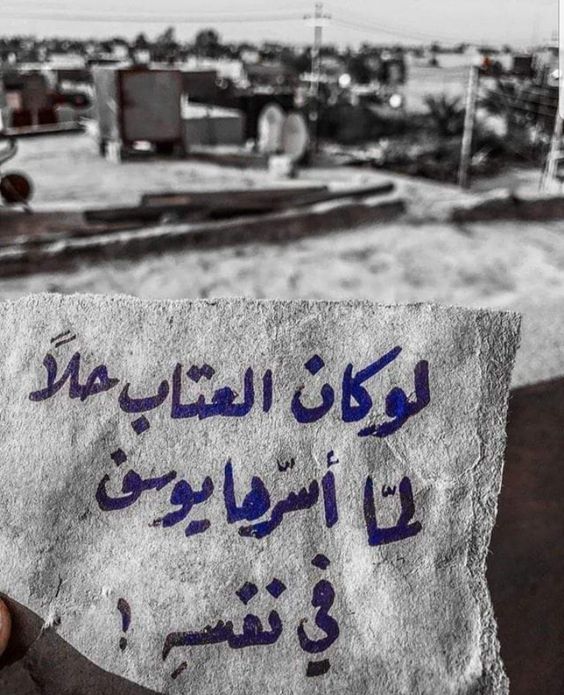 لو كان العتاب حلاً
لمّا أسّرها يوسف
في نفسهِ !